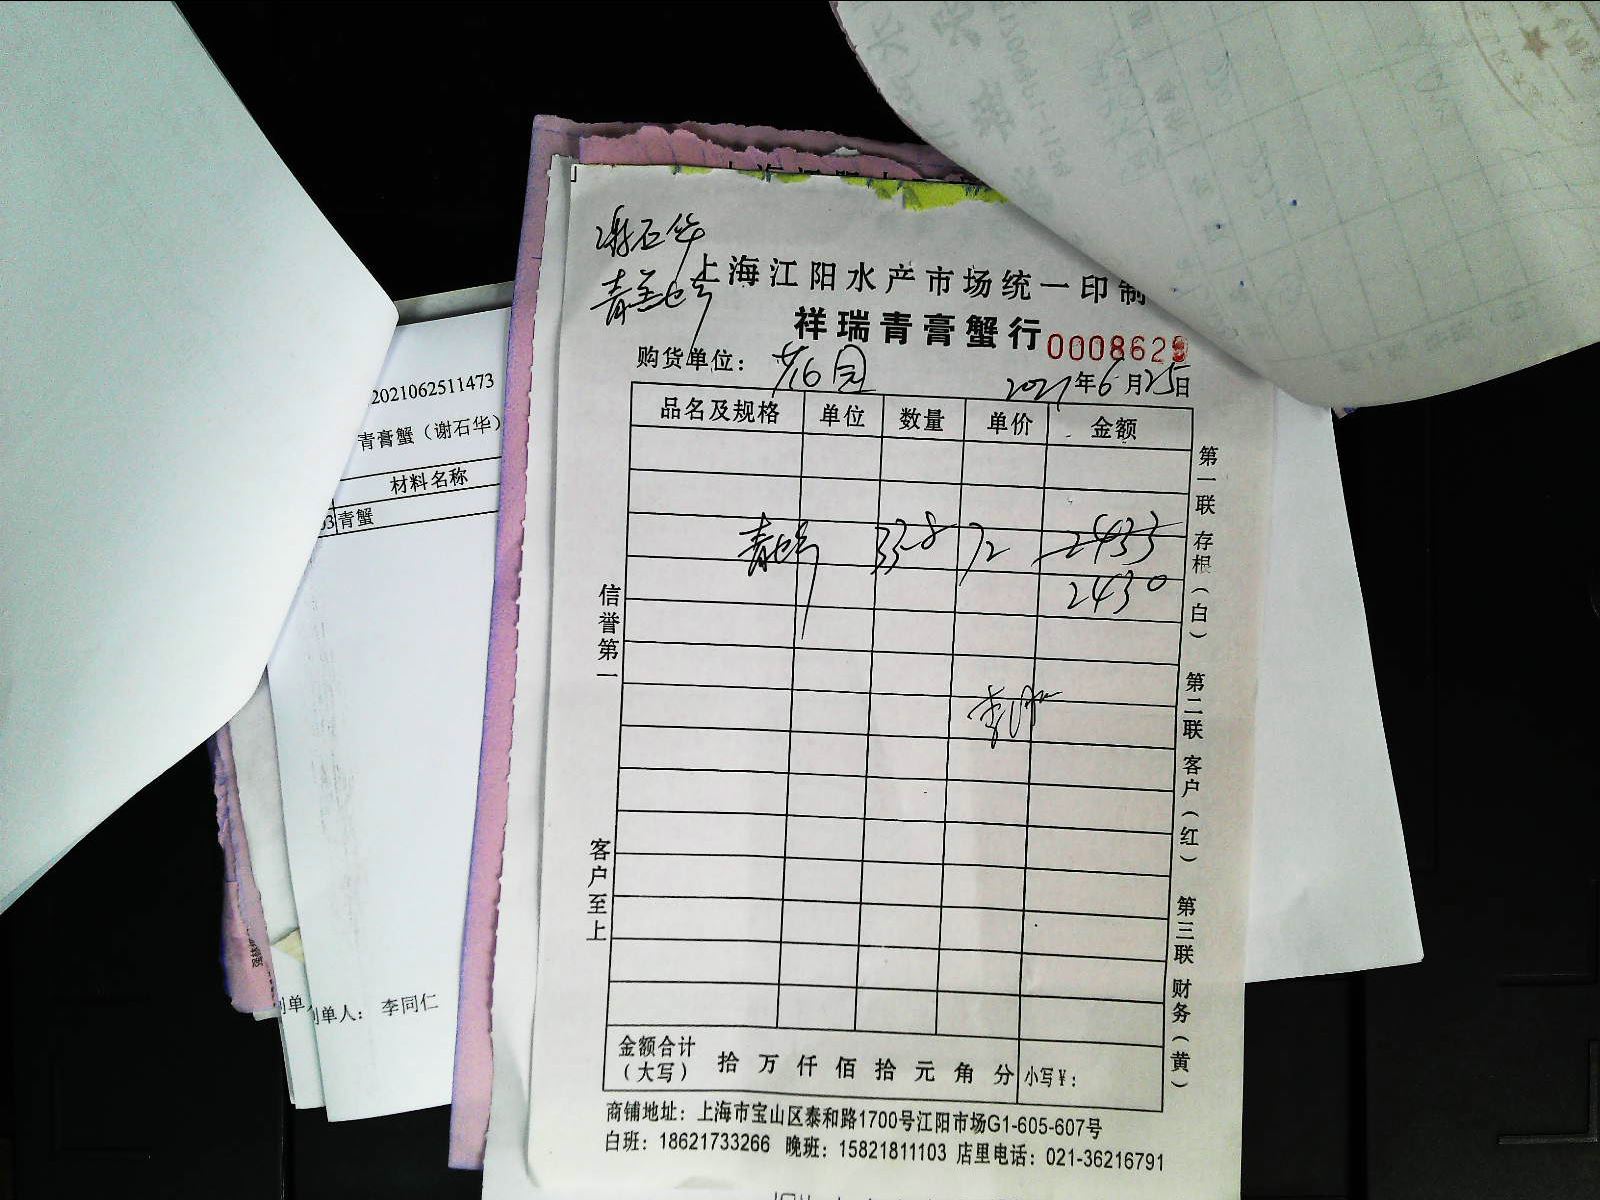 谢石华
青膏蟹
上海江阳水产市场统一印制
祥瑞青膏蟹行 0008629
购货单位：
2021年6月25日
品名及规格 单位 数量 单价 金额
青蟹 33.8 72 2433
2430
信誉第一
客户至上
第一联 存根（白） 第二联 客户（红） 第三联 财务（黄）
金额合计（大写） 拾 万 仟 佰 拾 元 角 分 小写￥：
商铺地址：上海市宝山区泰和路1700号江阳市场G1-605-607号
白班：18621733266 晚班：15821811103 店里电话：021-36216791
2021062511473
青膏蟹（谢石华）
材料名称
青蟹
制单人： 李同仁